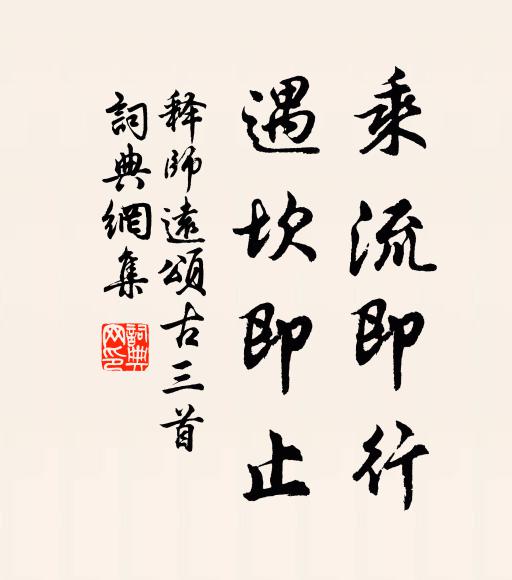 乘流即行
遇坎即止
释師遠頌古三首
詞典網集
詞典网印